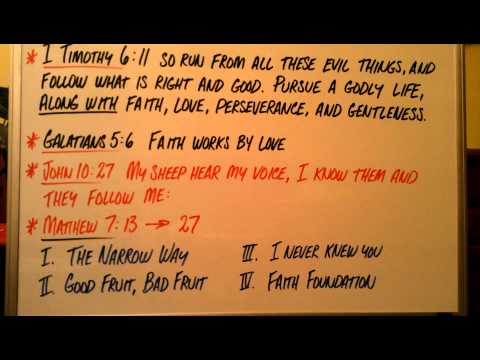 * I TIMOTHY 6:11 SO RUN FROM ALL THESE EVIL THINGS, AND
FOLLOW WHAT IS RIGHT AND GOOD. PURSUE A GODLY LIFE,
ALONG WITH FAITH, LOVE, PERSEVERANCE, AND GENTLENESS.
* GALATIANS 5:6 FAITH WORKS BY LOVE
* JOHN 10:27 MY SHEEP HEAR MY VOICE, I KNOW THEM AND
THEY FOLLOW ME:
* MATTHEW 7:13 → 27
I. THE NARROW WAY
II. GOOD FRUIT, BAD FRUIT
III. I NEVER KNEW YOU
IV. FAITH FOUNDATION